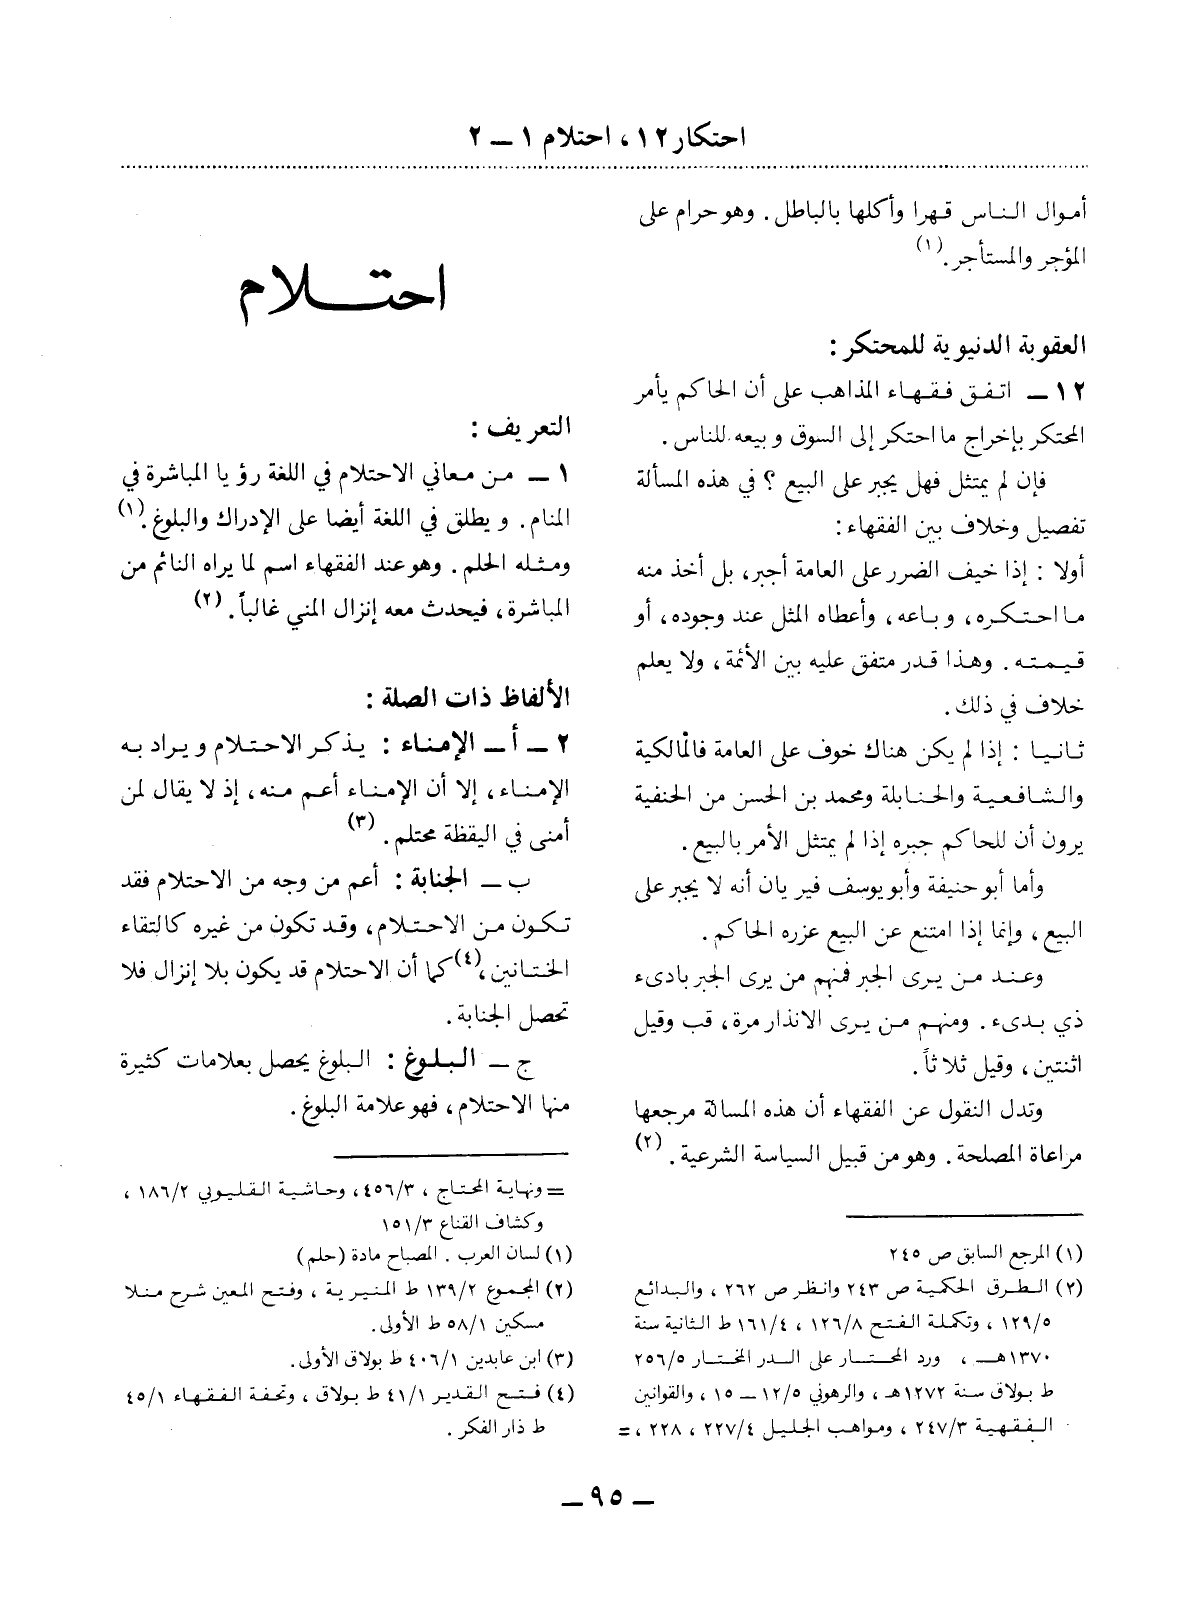 احتكار ١٢ ، احتلام ١ ـ ٢
أموال الناس قهرا وأكلها بالباطل . وهو حرام على
المؤجر والمستأجر .(١)
العقوبة الدنيوية للمحتكر :
١٢ ـ اتفق فقهاء المذاهب على أن الحاكم يأمر
المحتكر بإخراج ما احتكر إلى السوق وبيعه للناس .
فإن لم يمتثل فهل يجبر على البيع ؟ في هذه المسألة
تفصيل وخلاف بين الفقهاء :
أولا : إذا خيف الضرر على العامة أجبر، بل أخذ منه
ما احتكره، وباعه، وأعطاه المثل عند وجوده، أو
قيمته . وهذا قدر متفق عليه بين الأئمة، ولا يعلم
خلاف في ذلك .
ثانيا : إذا لم يكن هناك خوف على العامة فالمالكية
والشافعية والحنابلة ومحمد بن الحسن من الحنفية
يرون أن للحاكم جبره إذا لم يمتثل الأمر بالبيع .
وأما أبو حنيفة وأبو يوسف فيريان أنه لا يجبر على
البيع، وإنما إذا امتنع عن البيع عزره الحاكم .
وعند من يرى الجبر فمنهم من يرى الجبر بادىء
ذي بدىء . ومنهم من يرى الانذار مرة، قب وقيل
اثنتين، وقيل ثلاثاً .
وتدل النقول عن الفقهاء أن هذه المسالة مرجعها
مراعاة المصلحة . وهو من قبيل السياسة الشرعية . (٢)
(١) المرجع السابق ص ٢٤٥
(٢) الطرق الحكمية ص ٢٤٣ وانظر ص ٢٦٢ ، والبدائع
١٢٩/٥ ، وتكملة الفتح ١٢٦/٨ ، ١٦١/٤ ط الثانية سنة
١٣٧٠هـ ، ورد المحتار على الدر المختار ٢٥٦/٥
ط بولاق سنة ١٢٧٢هـ ، والرهوني ١٢/٥ ـ ١٥ ، والقوانين
الفقهية ٢٤٧/٣ ، ومواهب الجليل ٢٢٧/٤ ، ٢٢٨ ، =
احتلام
التعريف :
١ ـ من معاني الاحتلام في اللغة رؤيا المباشرة في
المنام . ويطلق في اللغة أيضا على الإدراك والبلوغ .(١)
ومثله الحلم . وهو عند الفقهاء اسم لما يراه النائم من
المباشرة، فيحدث معه إنزال المني غالباً . (٢)
الألفاظ ذات الصلة :
٢ ـ أ ـ الإمناء : يذكر الاحتلام ويراد به
الإمناء، إلا أن الإمناء أعم منه، إذ لا يقال لمن
أمنى في اليقظة محتلم . (٣)
ب ـ الجنابة : أعم من وجه من الاحتلام فقد
تكون من الاحتلام، وقد تكون من غيره كالتقاء
الختانين،(٤) كما أن الاحتلام قد يكون بلا إنزال فلا
تحصل الجنابة .
ج ـ البلوغ : البلوغ يحصل بعلامات كثيرة
منها الاحتلام، فهو علامة البلوغ .
= ونهاية المحتاج ، ٤٥٦/٣، وحاشية القليوبي ١٨٦/٢ ،
وكشاف القناع ١٥١/٣
(١) لسان العرب . المصباح مادة (حلم)
(٢) المجموع ١٣٩/٢ ط المنيرية ، وفتح المعين شرح منلا
مسكين ٥٨/١ ط الأولى .
(٣) ابن عابدين ٤٠٦/١ ط بولاق الأولى .
(٤) فتح القدير ٤١/١ ط بولاق ، وتحفة الفقهاء ٤٥/١
ط ذار الفكر .
ـ ٩٥ ـ